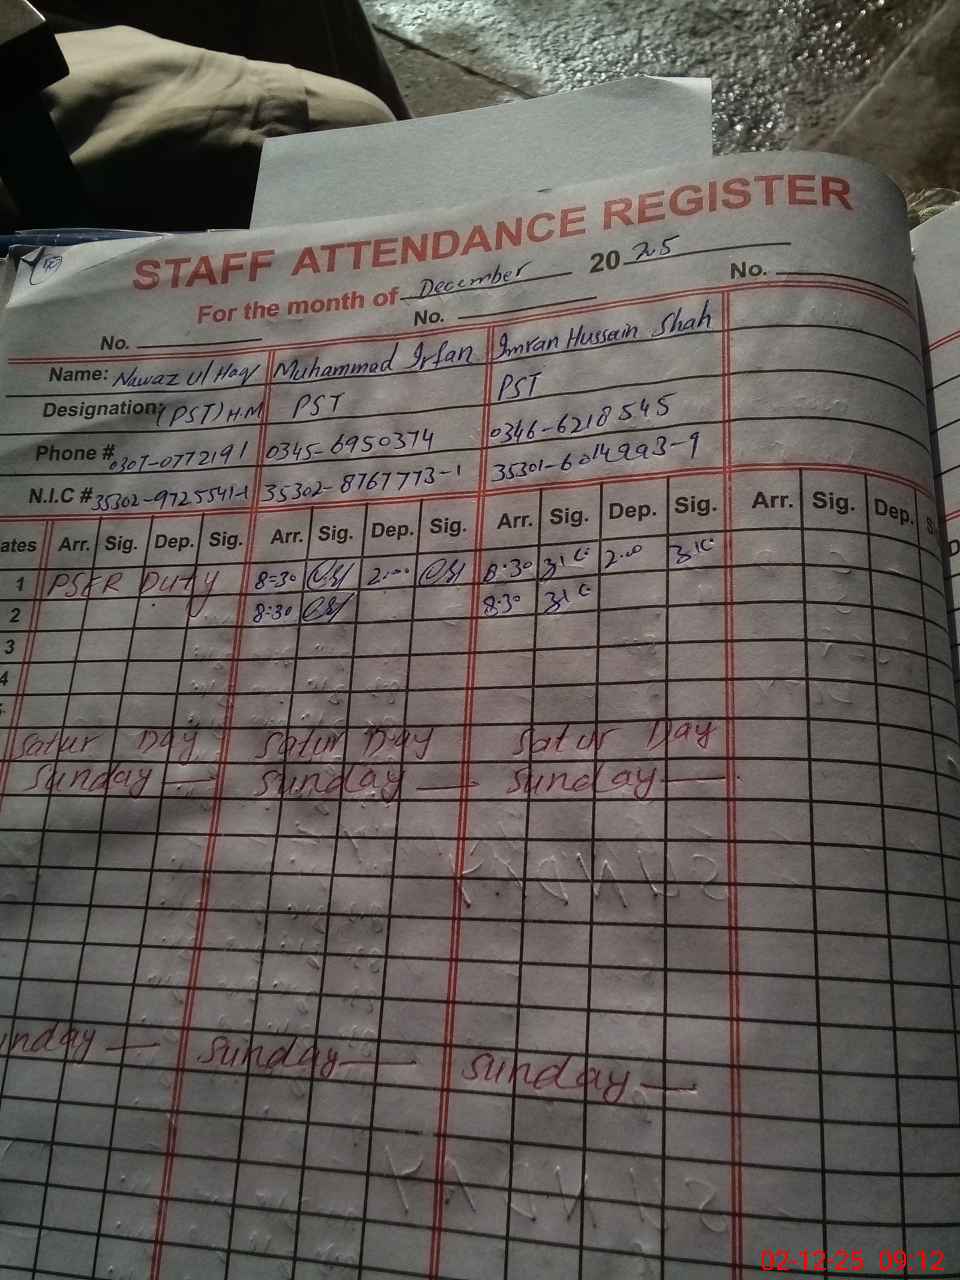 STAFF ATTENDANCE REGISTER
For the month of December 20 25
No. No. No.
Name: Nawaz ul Haq Muhammad Irfan Imran Hussain Shah
Designation: (PST) H.M PST PST
Phone # 0307-0772191 0345-6950374 0346-6218545
N.I.C # 35302-9725541-1 35302-8767773-1 35301-6014993-9
ates Arr. Sig. Dep. Sig. Arr. Sig. Dep. Sig. Arr. Sig. Dep. Sig. Arr. Sig. Dep. S
1 PSER Duty 8=30 2:00 8:30 2:00
2 8:30 8:30
3
4
Satur Day Satur Day Satur Day
Sunday — Sunday — Sunday —
unday — Sunday — Sunday —
02-12-25 09:12